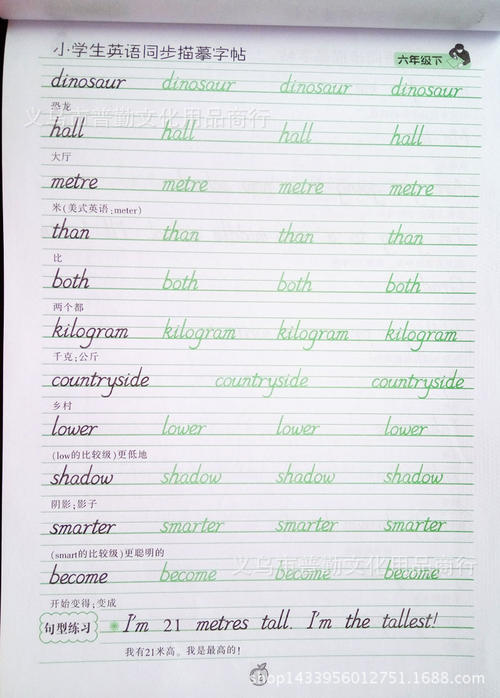 小学生英语同步描摹字帖 六年级下
dinosaur dinosaur dinosaur dinosaur
恐龙
义乌市普勤文化用品商行
hall hall hall hall
大厅
metre metre metre metre
米(美式英语:meter)
than than than than
比
both both both both
两个都
kilogram kilogram kilogram kilogram
千克;公斤
countryside countryside countryside
乡村
lower lower lower lower
(low的比较级)更低地
shadow shadow shadow shadow
阴影;影子
smarter smarter smarter smarter
(smart的比较级)更聪明的
义乌市普勤文化用品商行
become become become become
开始变得;变成
句型练习 I'm 21 metres tall. I'm the tallest!
我有21米高。我是最高的!
shop1433956012751.1688.com